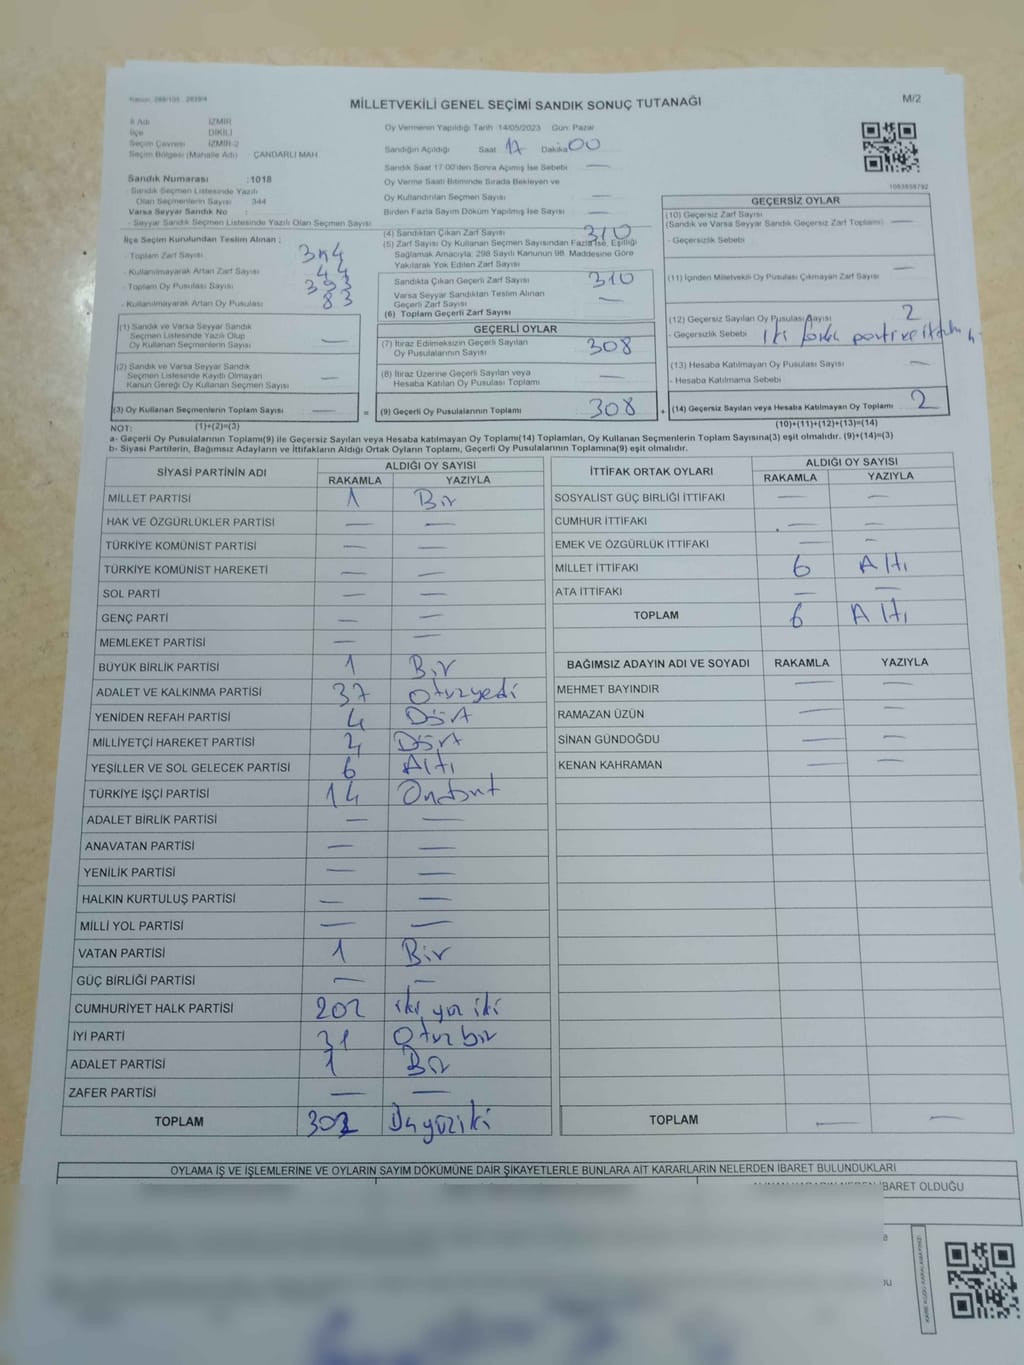 MİLLETVEKİLİ GENEL SEÇİMİ SANDIK SONUÇ TUTANAĞI
M/2
İl Adı İZMİR
İlçe DİKİLİ
Seçim Çevresi İZMİR-2
Seçim Bölgesi (Mahalle Adı) ÇANDARLI MAH
Sandık Numarası :1018
- Sandık Seçmen Listesinde Yazılı
Olan Seçmenlerin Sayısı 344
Varsa Seyyar Sandık No :
- Seyyar Sandık Seçmen Listesinde Yazılı Olan Seçmen Sayısı
İlçe Seçim Kurulundan Teslim Alınan :
- Toplam Zarf Sayısı
- Kullanılmayarak Artan Zarf Sayısı 44
- Toplam Oy Pusulası Sayısı 393
- Kullanılmayarak Artan Oy Pusulası 83
(1) Sandık ve Varsa Seyyar Sandık
Seçmen Listesinde Yazılı Olup
Oy Kullanan Seçmenlerin Sayısı —
(2) Sandık ve Varsa Seyyar Sandık
Seçmen Listesinde Kayıtlı Olmayan
Kanun Gereği Oy Kullanan Seçmen Sayısı —
(3) Oy Kullanan Seçmenlerin Toplam Sayısı — =
(1)+(2)=(3)
Oy Vermenin Yapıldığı Tarih :14/05/2023 Gün: Pazar
Sandığın Açıldığı Saat 17 Dakika 00
Sandık Saat 17:00'den Sonra Açılmış İse Sebebi —
Oy Verme Saati Bitiminde Sırada Bekleyen ve
Oy Kullandırılan Seçmen Sayısı —
Birden Fazla Sayım Döküm Yapılmış İse Sayısı —
(4) Sandıktan Çıkan Zarf Sayısı 310
(5) Zarf Sayısı Oy Kullanan Seçmen Sayısından Fazla İse, Eşitliği
Sağlamak Amacıyla; 298 Sayılı Kanunun 98. Maddesine Göre
Yakılarak Yok Edilen Zarf Sayısı
Sandıkta Çıkan Geçerli Zarf Sayısı 310
Varsa Seyyar Sandıktan Teslim Alınan
Geçerli Zarf Sayısı —
(6) Toplam Geçerli Zarf Sayısı
GEÇERLİ OYLAR
(7) İtiraz Edilmeksizin Geçerli Sayılan
Oy Pusulalarının Sayısı 308
(8) İtiraz Üzerine Geçerli Sayılan veya
Hesaba Katılan Oy Pusulası Toplamı —
(9) Geçerli Oy Pusulalarının Toplamı 308 +
1083858792
GEÇERSİZ OYLAR
(10) Geçersiz Zarf Sayısı
(Sandık ve Varsa Seyyar Sandık Geçersiz Zarf Toplamı) —
- Geçersizlik Sebebi
(11) İçinden Milletvekili Oy Pusulası Çıkmayan Zarf Sayısı —
(12) Geçersiz Sayılan Oy Pusulası Sayısı 2
- Geçersizlik Sebebi
(13) Hesaba Katılmayan Oy Pusulası Sayısı —
- Hesaba Katılmama Sebebi
(14) Geçersiz Sayılan veya Hesaba Katılmayan Oy Toplamı 2
(10)+(11)+(12)+(13)=(14)
NOT:
a- Geçerli Oy Pusulalarının Toplamı(9) ile Geçersiz Sayılan veya Hesaba katılmayan Oy Toplamı(14) Toplamları, Oy Kullanan Seçmenlerin Toplam Sayısına(3) eşit olmalıdır. (9)+(14)=(3)
b- Siyasi Partilerin, Bağımsız Adayların ve İttifakların Aldığı Ortak Oyların Toplamı, Geçerli Oy Pusulalarının Toplamına(9) eşit olmalıdır.
SİYASİ PARTİNİN ADI ALDIĞI OY SAYISI
RAKAMLA YAZIYLA
MİLLET PARTİSİ 1 Bir
HAK VE ÖZGÜRLÜKLER PARTİSİ — —
TÜRKİYE KOMÜNİST PARTİSİ — —
TÜRKİYE KOMÜNİST HAREKETİ — —
SOL PARTİ — —
GENÇ PARTİ — —
MEMLEKET PARTİSİ — —
BÜYÜK BİRLİK PARTİSİ 1 Bir
ADALET VE KALKINMA PARTİSİ 37 Otuzyedi
YENİDEN REFAH PARTİSİ 4 Dört
MİLLİYETÇİ HAREKET PARTİSİ 4 Dört
YEŞİLLER VE SOL GELECEK PARTİSİ 6 Altı
TÜRKİYE İŞÇİ PARTİSİ 14 Ondört
ADALET BİRLİK PARTİSİ — —
ANAVATAN PARTİSİ — —
YENİLİK PARTİSİ — —
HALKIN KURTULUŞ PARTİSİ — —
MİLLİ YOL PARTİSİ — —
VATAN PARTİSİ 1 Bir
GÜÇ BİRLİĞİ PARTİSİ — —
CUMHURİYET HALK PARTİSİ 202 iki yüz iki
İYİ PARTİ 31 Otuz bir
ADALET PARTİSİ 1 Bir
ZAFER PARTİSİ — —
TOPLAM 302
İTTİFAK ORTAK OYLARI ALDIĞI OY SAYISI
RAKAMLA YAZIYLA
SOSYALİST GÜÇ BİRLİĞİ İTTİFAKI — —
CUMHUR İTTİFAKI — —
EMEK VE ÖZGÜRLÜK İTTİFAKI — —
MİLLET İTTİFAKI 6 Altı
ATA İTTİFAKI — —
TOPLAM 6 Altı
BAĞIMSIZ ADAYIN ADI VE SOYADI RAKAMLA YAZIYLA
MEHMET BAYINDIR — —
RAMAZAN ÜZÜN — —
SİNAN GÜNDOĞDU — —
KENAN KAHRAMAN — —
TOPLAM — —
OYLAMA İŞ VE İŞLEMLERİNE VE OYLARIN SAYIM DÖKÜMÜNE DAİR ŞİKAYETLERLE BUNLARA AİT KARARLARIN NELERDEN İBARET BULUNDUKLARI
İBARET OLDUĞU